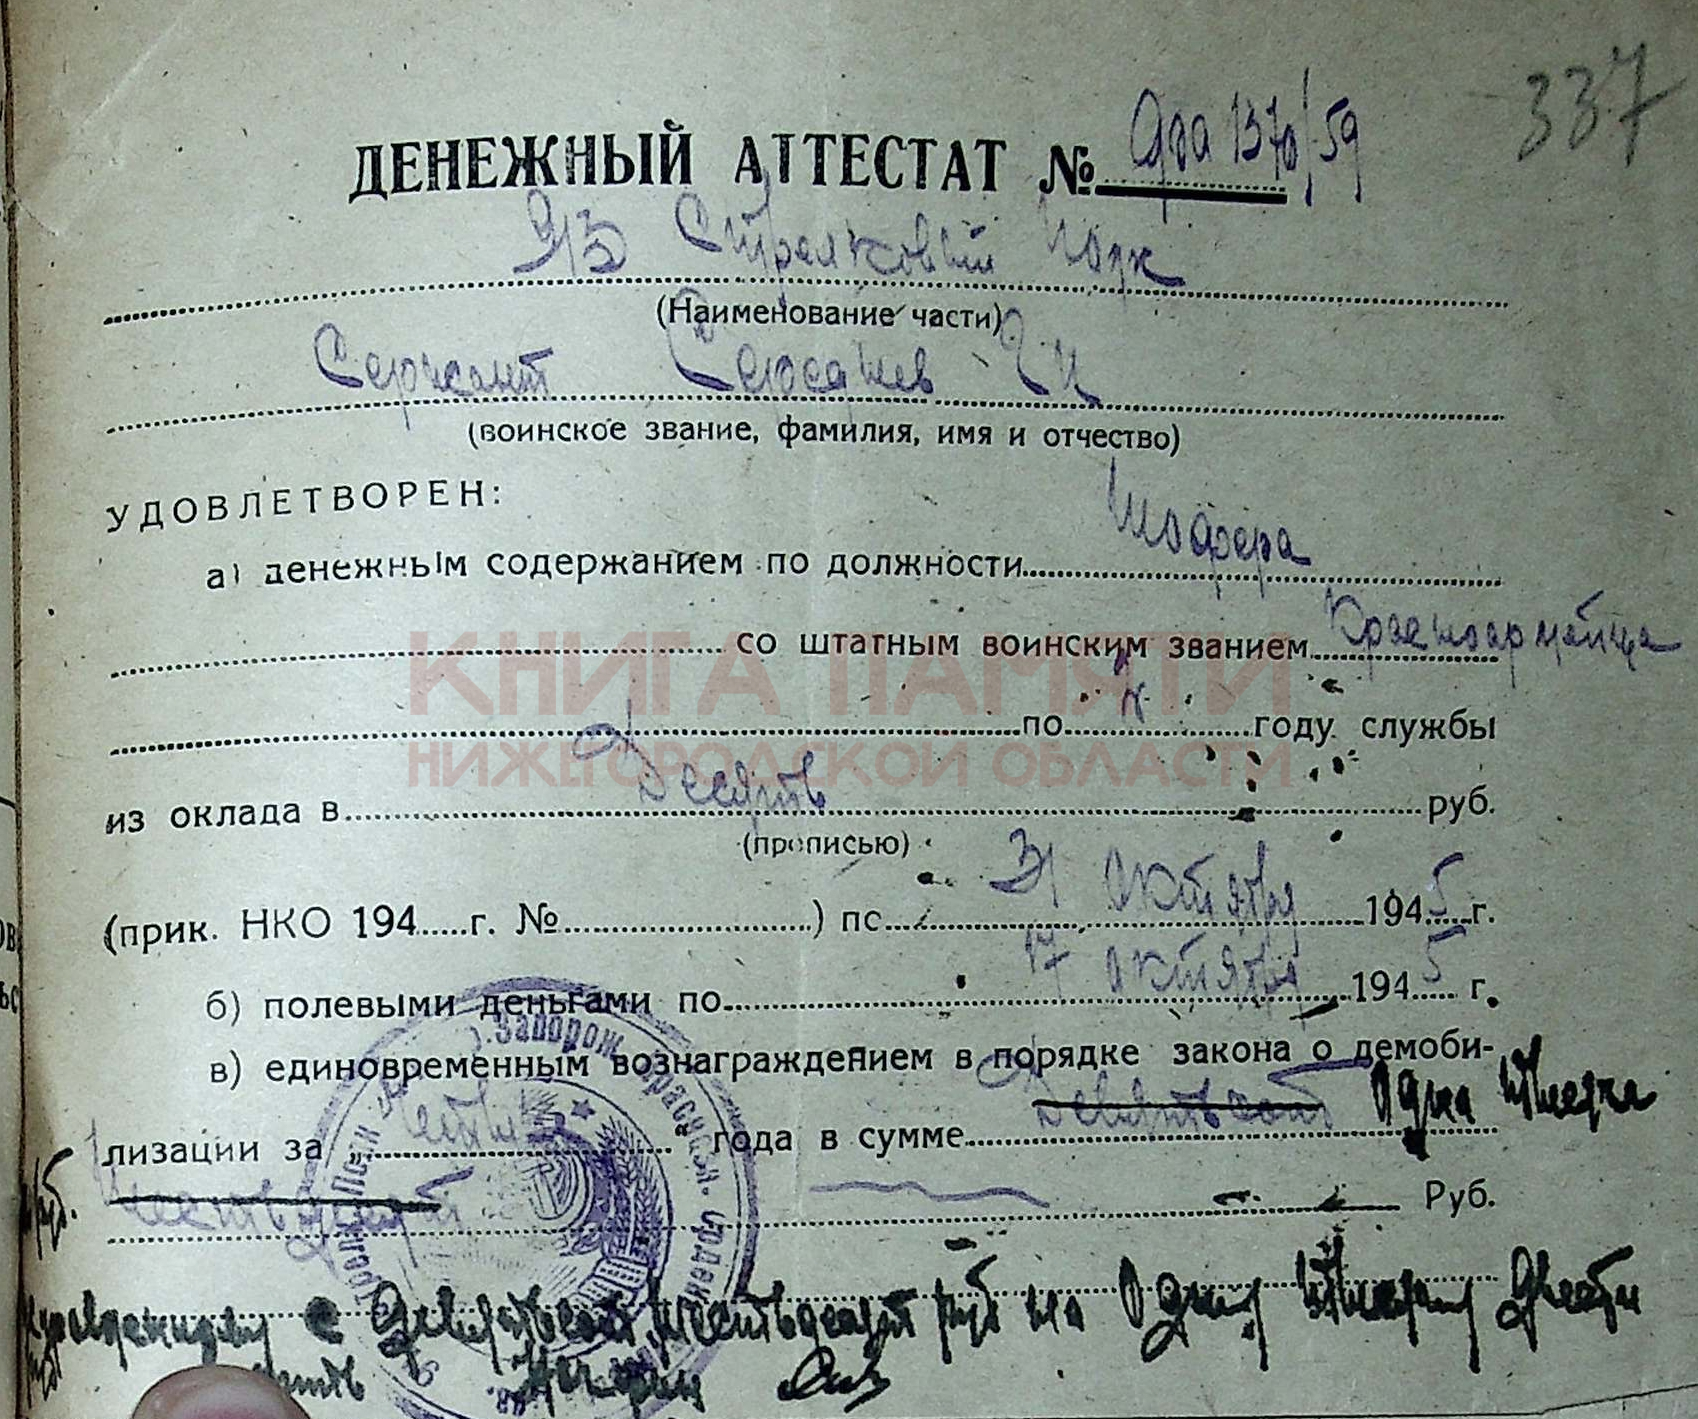 337
ДЕНЕЖНЫЙ АТТЕСТАТ №
Стрелковый Полк
(Наименование части)
Сержант
(воинское звание, фамилия, имя и отчество)
УДОВЛЕТВОРЕН:
а) денежным содержанием по должности Шофера
со штатным воинским званием Красноармейца
по году службы
из оклада в Десять руб.
(прописью)
(прик. НКО 194 г. № ) по 31 октября 1945 г.
б) полевыми деньгами по 17 октября 1945 г.
в) единовременным вознаграждением в порядке закона о демоби-
лизации за года в сумме Девятьсот Одна тысяча
Шестьдесят Руб.
руб.
с Девятьсот шестьдесят руб на Одну тысячу Двести
КНИГА ПАМЯТИ
НИЖЕГОРОДСКОЙ ОБЛАСТИ